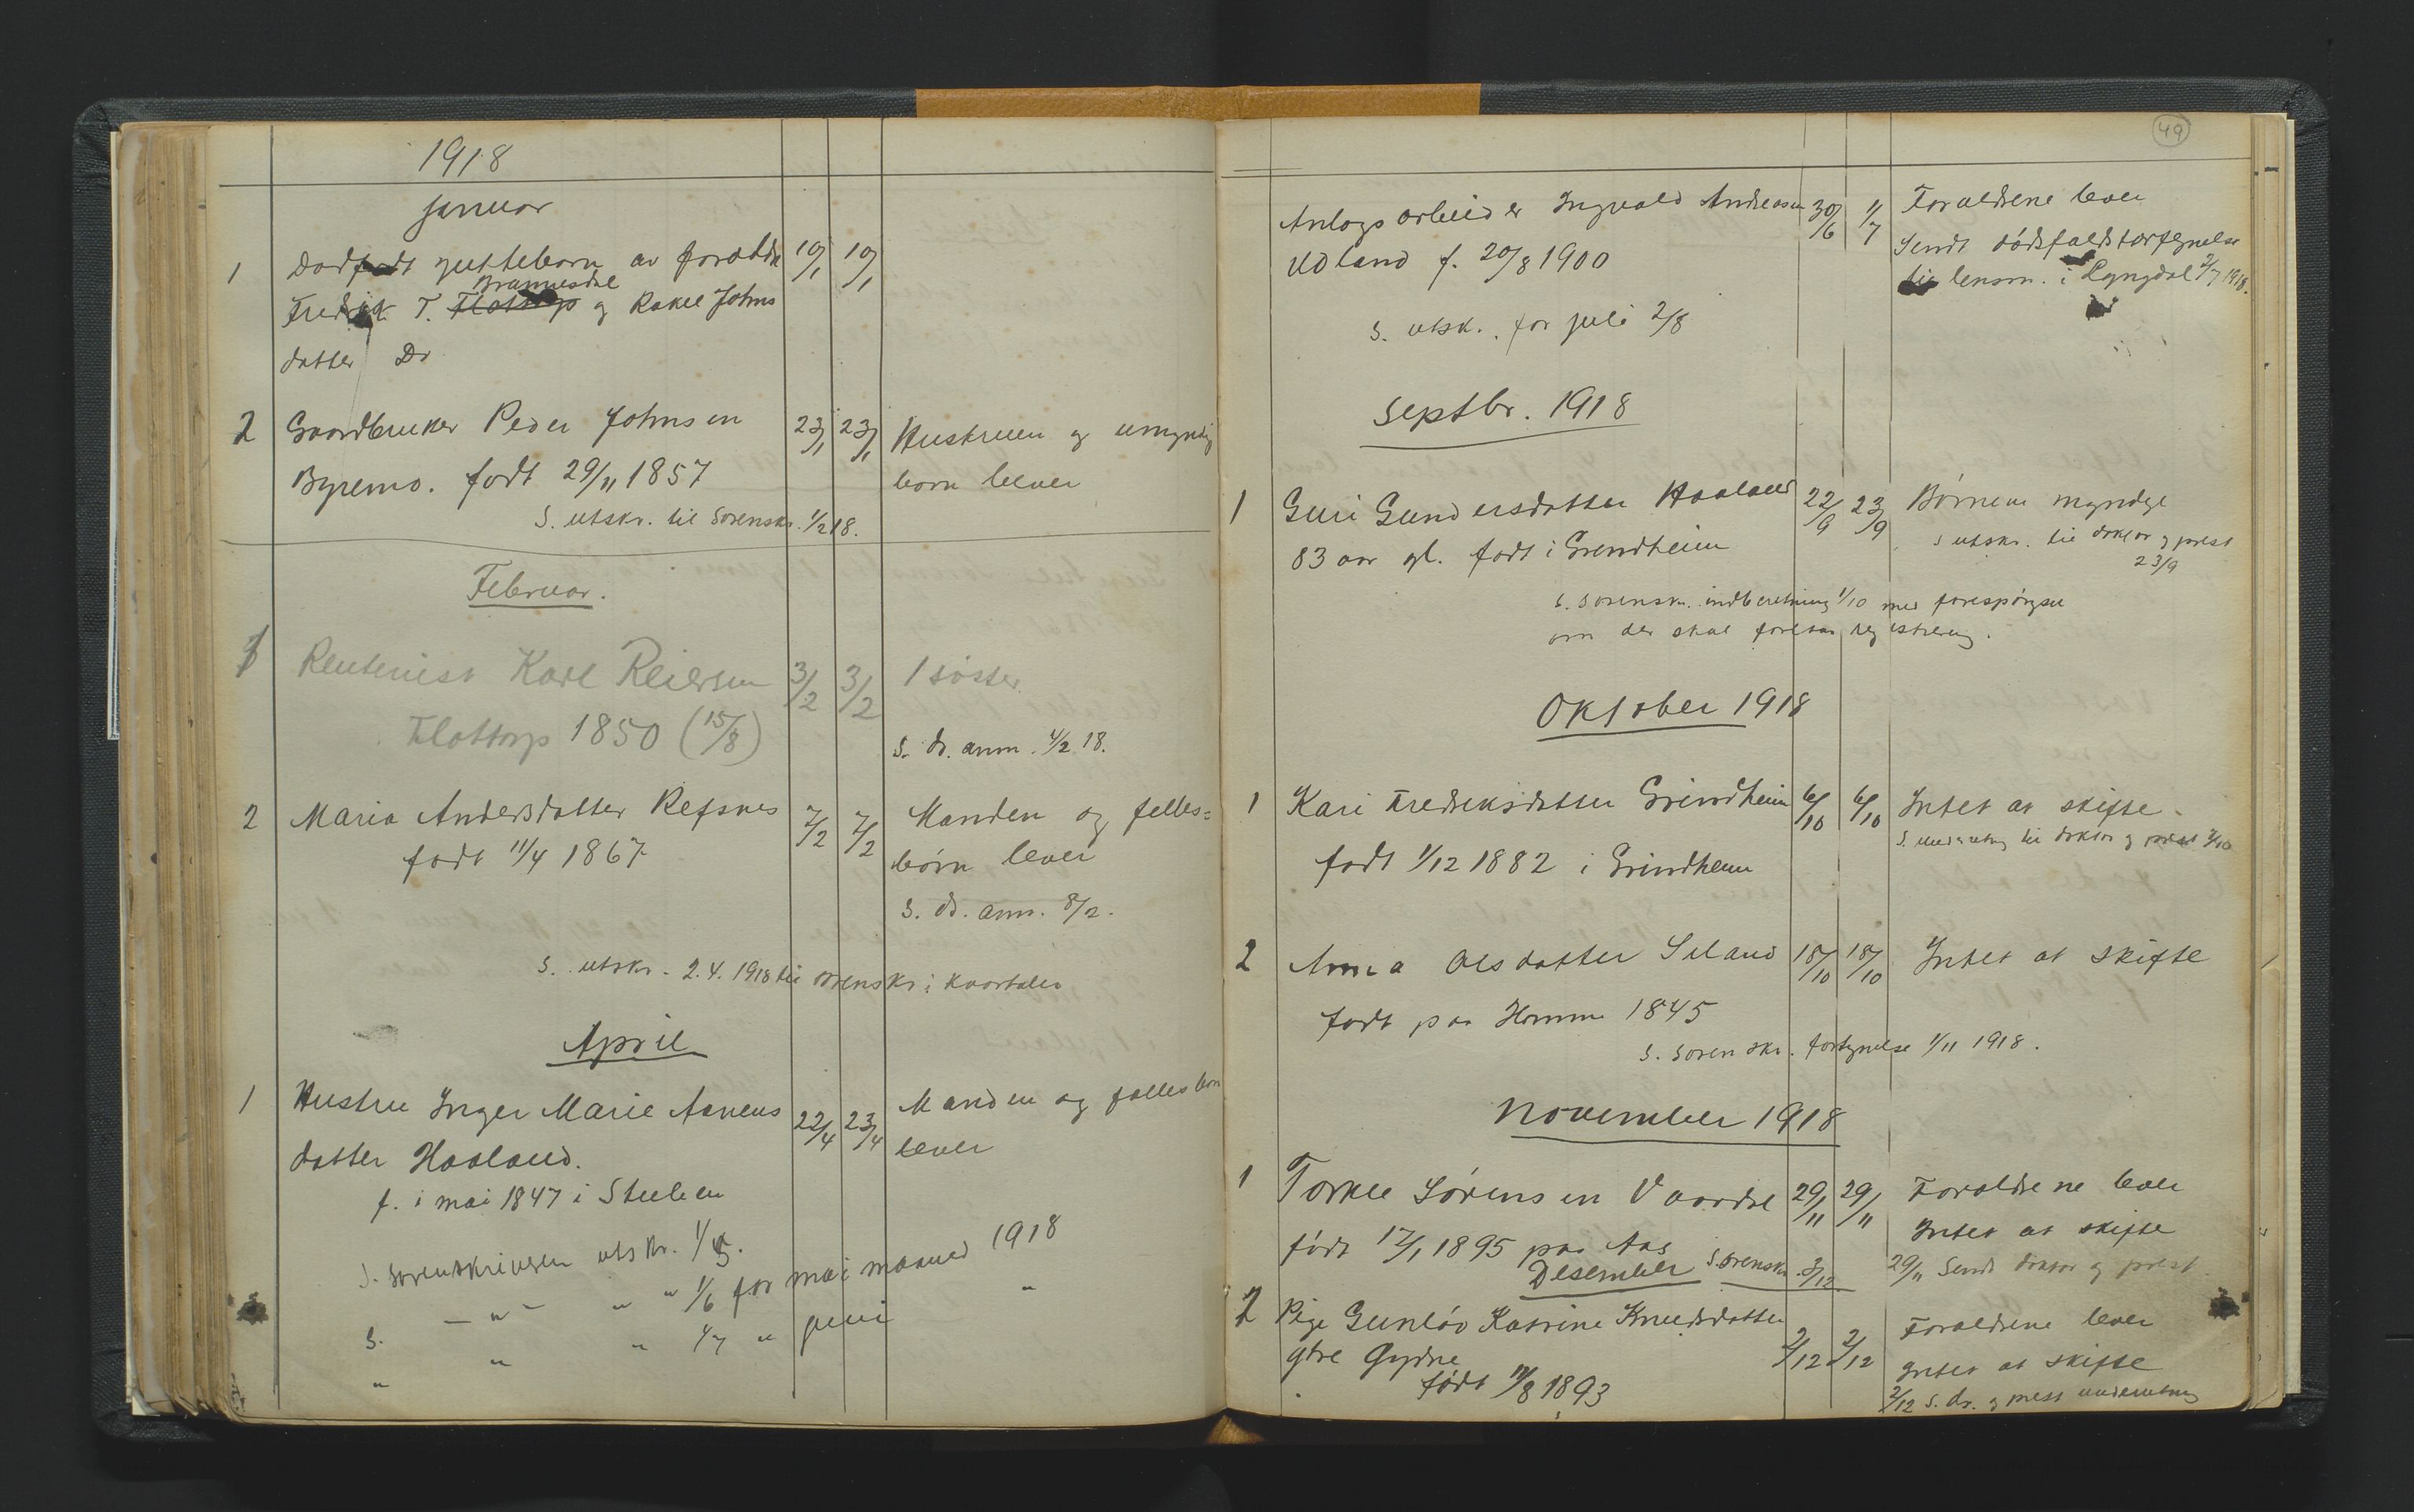 1918
Januar
1 Dødfødt guttebarn av forældre 10/1 10/1
Brannesdal
Fredrik T. Flottorp og Rakel Johns
datter Do
2 Gaardbruker Peder Johnsen 23/1 23/1 Hustruen og umyndig
Byremo. født 29/11 1857 born lever
S. utskr. til Sorenskr. 1/2 18.
Februar.
1 Rentenist Karl Reiersen 3/2 3/2 1 søster
Flottorp 1850 (15/8)
S. dr. anm. 4/2 18.
2 Maria Andersdatter Refsnes 7/2 7/2 Manden og felles=
født 11/4 1867 børn lever
S. dr. anm. 8/2.
S. utskr. 2.4. 1918 til sorenskr i kvartalet
April
1 Hustru Inger Marie Aanens 22/4 23/4 Manden og fælles born
datter Haaland. lever
f. i mai 1847 i
S. sorenskriveren utskr. 1/5.
S. — " — " " 1/6 for mai maaned 1918
" " " 1/7 " juni "
49
Anlægsarbeider Ingvald Andreasen 30/6 1/7 Forældrene lever
Udland f. 20/8 1900 Sendt dødsfaldsfortegnelse
til lensm. i Lyngdal 2/7 1918.
S. utsk. for juli 2/8
Septbr. 1918
1 Guri Gundersdatter Haaland 22/9 23/9 Børnene myndige
83 aar gl. født i Grendheim S utskr. til doktor og prest
23/9
S. sorenskr. indberetning 1/10 med forespørgsel
om der skal foretas registrering.
Oktober 1918
1 Kari Fredriksdatter Grindheim 6/10 6/10 Intet at skifte.
S. underretng til doktor og prest 7/10
født 1/12 1882 i Grindheim
2 Anna Olsdatter Seland 18/10 18/10 Intet at skifte
født paa Homme 1845
S. sorenskr. fortegnelse 1/11 1918.
November 1918
1 Torkel Sørensen Vaardal 29/11 29/11 Forældrene lever
Intet at skifte
født 17/1 1895 paa Aas
29/11 Sendt doktor og prest.
Desember S. sorenskr. 3/12.
2 Pige Gunløv Katrine Knudsdatter 2/12 2/12 Forældrene lever
ytre Gydne Intet at skifte
født 1893
2/12 S. dr. og prest underretning